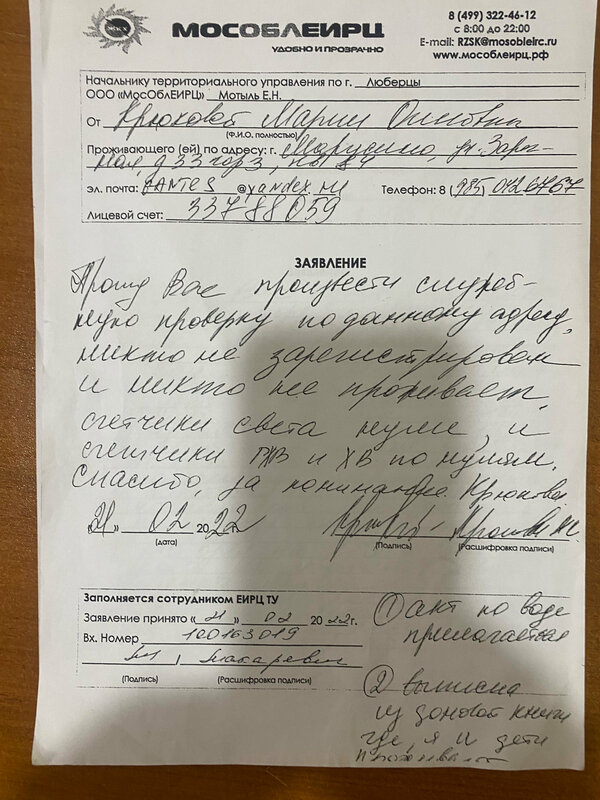 МОСОБЛЕИРЦ
УДОБНО И ПРОЗРАЧНО
8 (499) 322-46-12
с 8:00 до 22:00
E-mail: RZSK@mosobleirc.ru
www.мособлеирц.рф
Начальнику территориального управления по г. Люберцы
ООО «МосОблЕИРЦ» Мотыль Е.Н.
От Крюковой Марии
(Ф.И.О. полностью)
Проживающего (ей) по адресу: г. Марусино, ул. Заречная, д 33 кор 3, кв. 84
эл. почта: @yandex.ru Телефон: 8 (985) 0426767
Лицевой счет: 33788059
ЗАЯВЛЕНИЕ
Прошу Вас произвести служеб-
ную проверку по данному адресу,
никто не зарегистрирован
и никто не проживает,
счетчики света нули, и
счетчики ГЖВ и ХВ по нулям.
Спасибо, за понимание. Крюкова
«21» 02 2022г.
(дата) (Подпись) (Расшифровка подписи)
Заполняется сотрудником ЕИРЦ ТУ
Заявление принято «21» 02 2022г.
Вх. Номер 100163019
Макаревич
(Подпись) (Расшифровка подписи)
① акт по воде
прилагается
② выписка
из домовой книги
где, я и дети
проживают